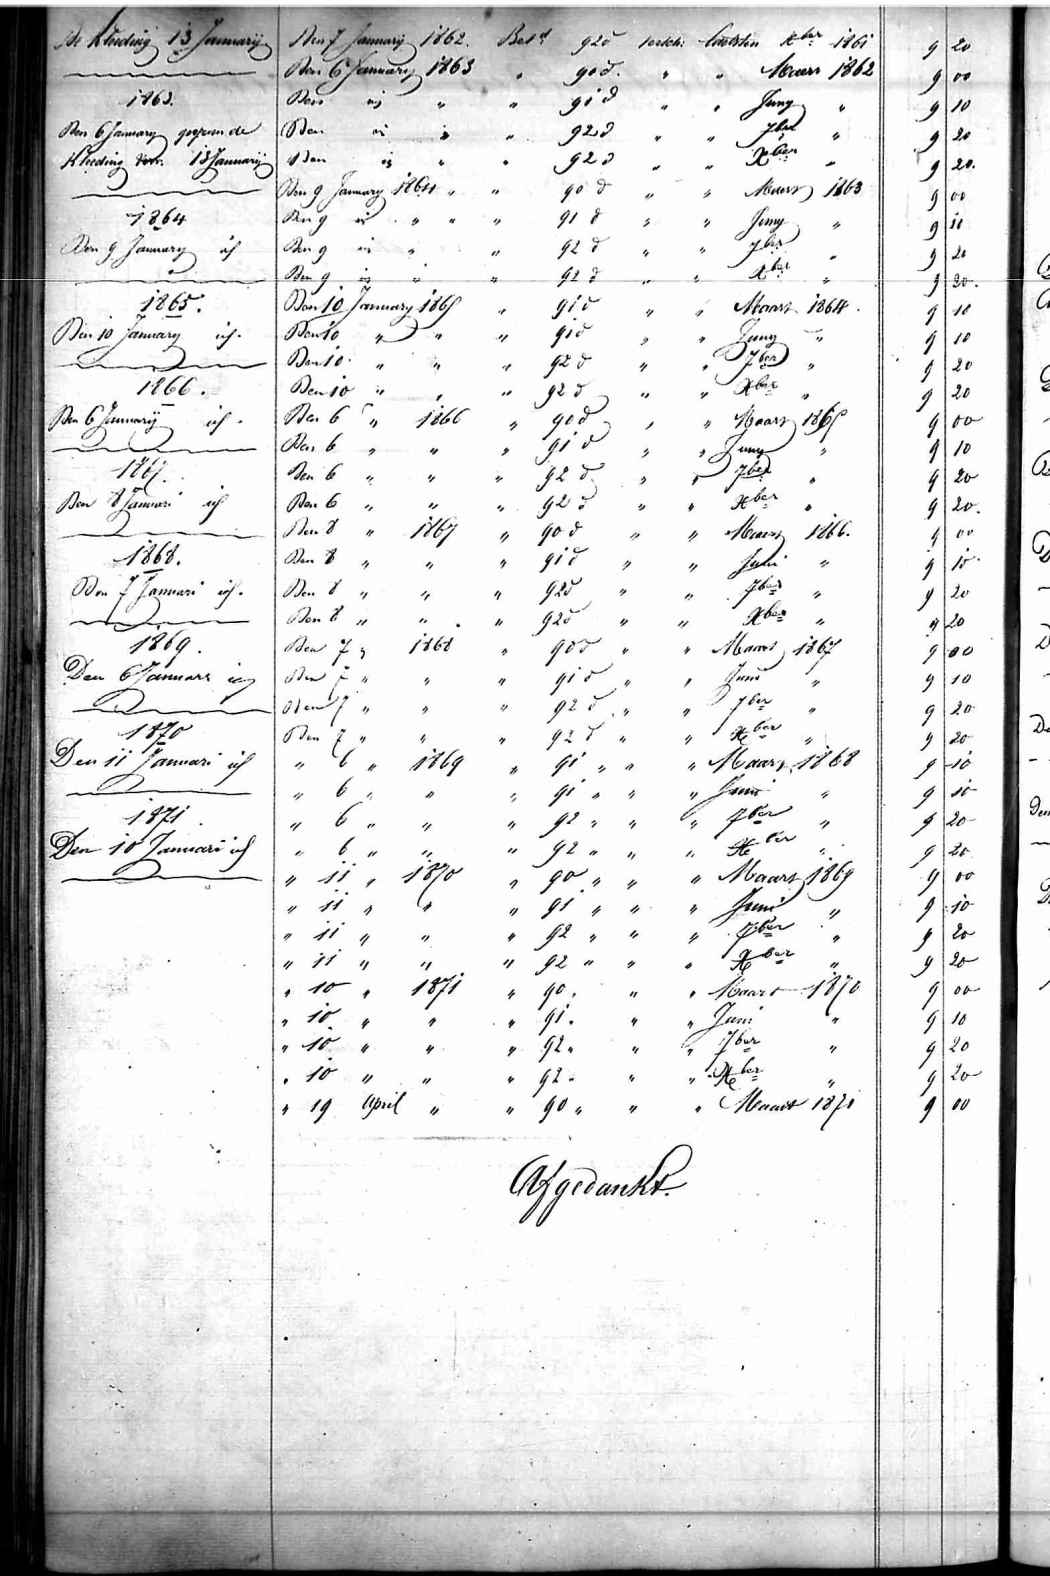 de Kleeding 13 Januarij
1863.
Den 6 January gegeven de
Kleeding 13 Januarij
1864
Den 9 January
1865.
Den 10 January
1866.
Den 6 Januarij
1867.
Den 8 Januari
1868.
Den 7 Januari
1869.
Den 6 Januari
1870
Den 11 Januari
1871
Den 10 Januari
Den 7 Januarij 1862. Bet 92 d laatsten Xber 1861 9 20
Den 6 January 1863 " 90 d. " " Maart 1862 9 00
Den " " 91 d " " Juny " 9 10
Den " " 92 d " " 7ber " 9 20
Den " " 92 d " " Xber " 9 20.
Den 9 January 1864 " " 90 d " " Maart 1863 9 00
Den 9 " " " 91 d " " Juny " 9 10
Den 9 " " 92 d " " 7ber " 9 20
Den 9 " " 92 d " " Xber " 9 20.
Den 10 January 1865 " 91 d " " Maart 1864. 9 10
Den 10 " " " 91 d " " Juny " 9 10
Den 10. " " " 92 d " " 7ber " 9 20
Den 10 " " " 92 d " " Xber " 9 20
Den 6 " 1866 " 90 d " " Maart 1865 9 00
Den 6 " " " 91 d " " Juny " 9 10
Den 6 " " " 92 d " " 7ber " 9 20
Den 6 " " " 92 d " " Xber " 9 20.
Den 8 " 1867 " 90 d " " Maart 1866. 9 00
Den 8 " " " 91 d " " Juni " 9 10
Den 8 " " " 92 d " " 7ber " 9 20
Den 8 " " " 92 d " " Xber " 9 20
Den 7 " 1868 " 90 d " " Maart 1867 9 00
Den 7 " " " 91 d " " Juni " 9 10
Den 7 " " " 92 d " " 7ber " 9 20
Den 7 " " " 92 d " " Xber " 9 20
" 6 " 1869 " 91 " " " Maart 1868 9 10
" 6 " " " 91 " " " Juni " 9 10
" 6 " " " 92 " " " 7ber " 9 20
" 6 " " " 92 " " " Xber " 9 20
" 11 " 1870 " 90 " " " Maart 1869 9 00
" 11 " " " 91 " " " Juni " 9 10
" 11 " " " 92 " " " 7ber " 9 20
" 11 " " " 92 " " " Xber " 9 20
" 10 " 1871 " 90 " " " Maart 1870 9 00
" 10 " " " 91 " " " Juni " 9 10
" 10 " " " 92 " " " 7ber " 9 20
" 10 " " " 92 " " " Xber " 9 20
" 19 April " " 90 " " " Maart 1871 9 00
Afgedankt.